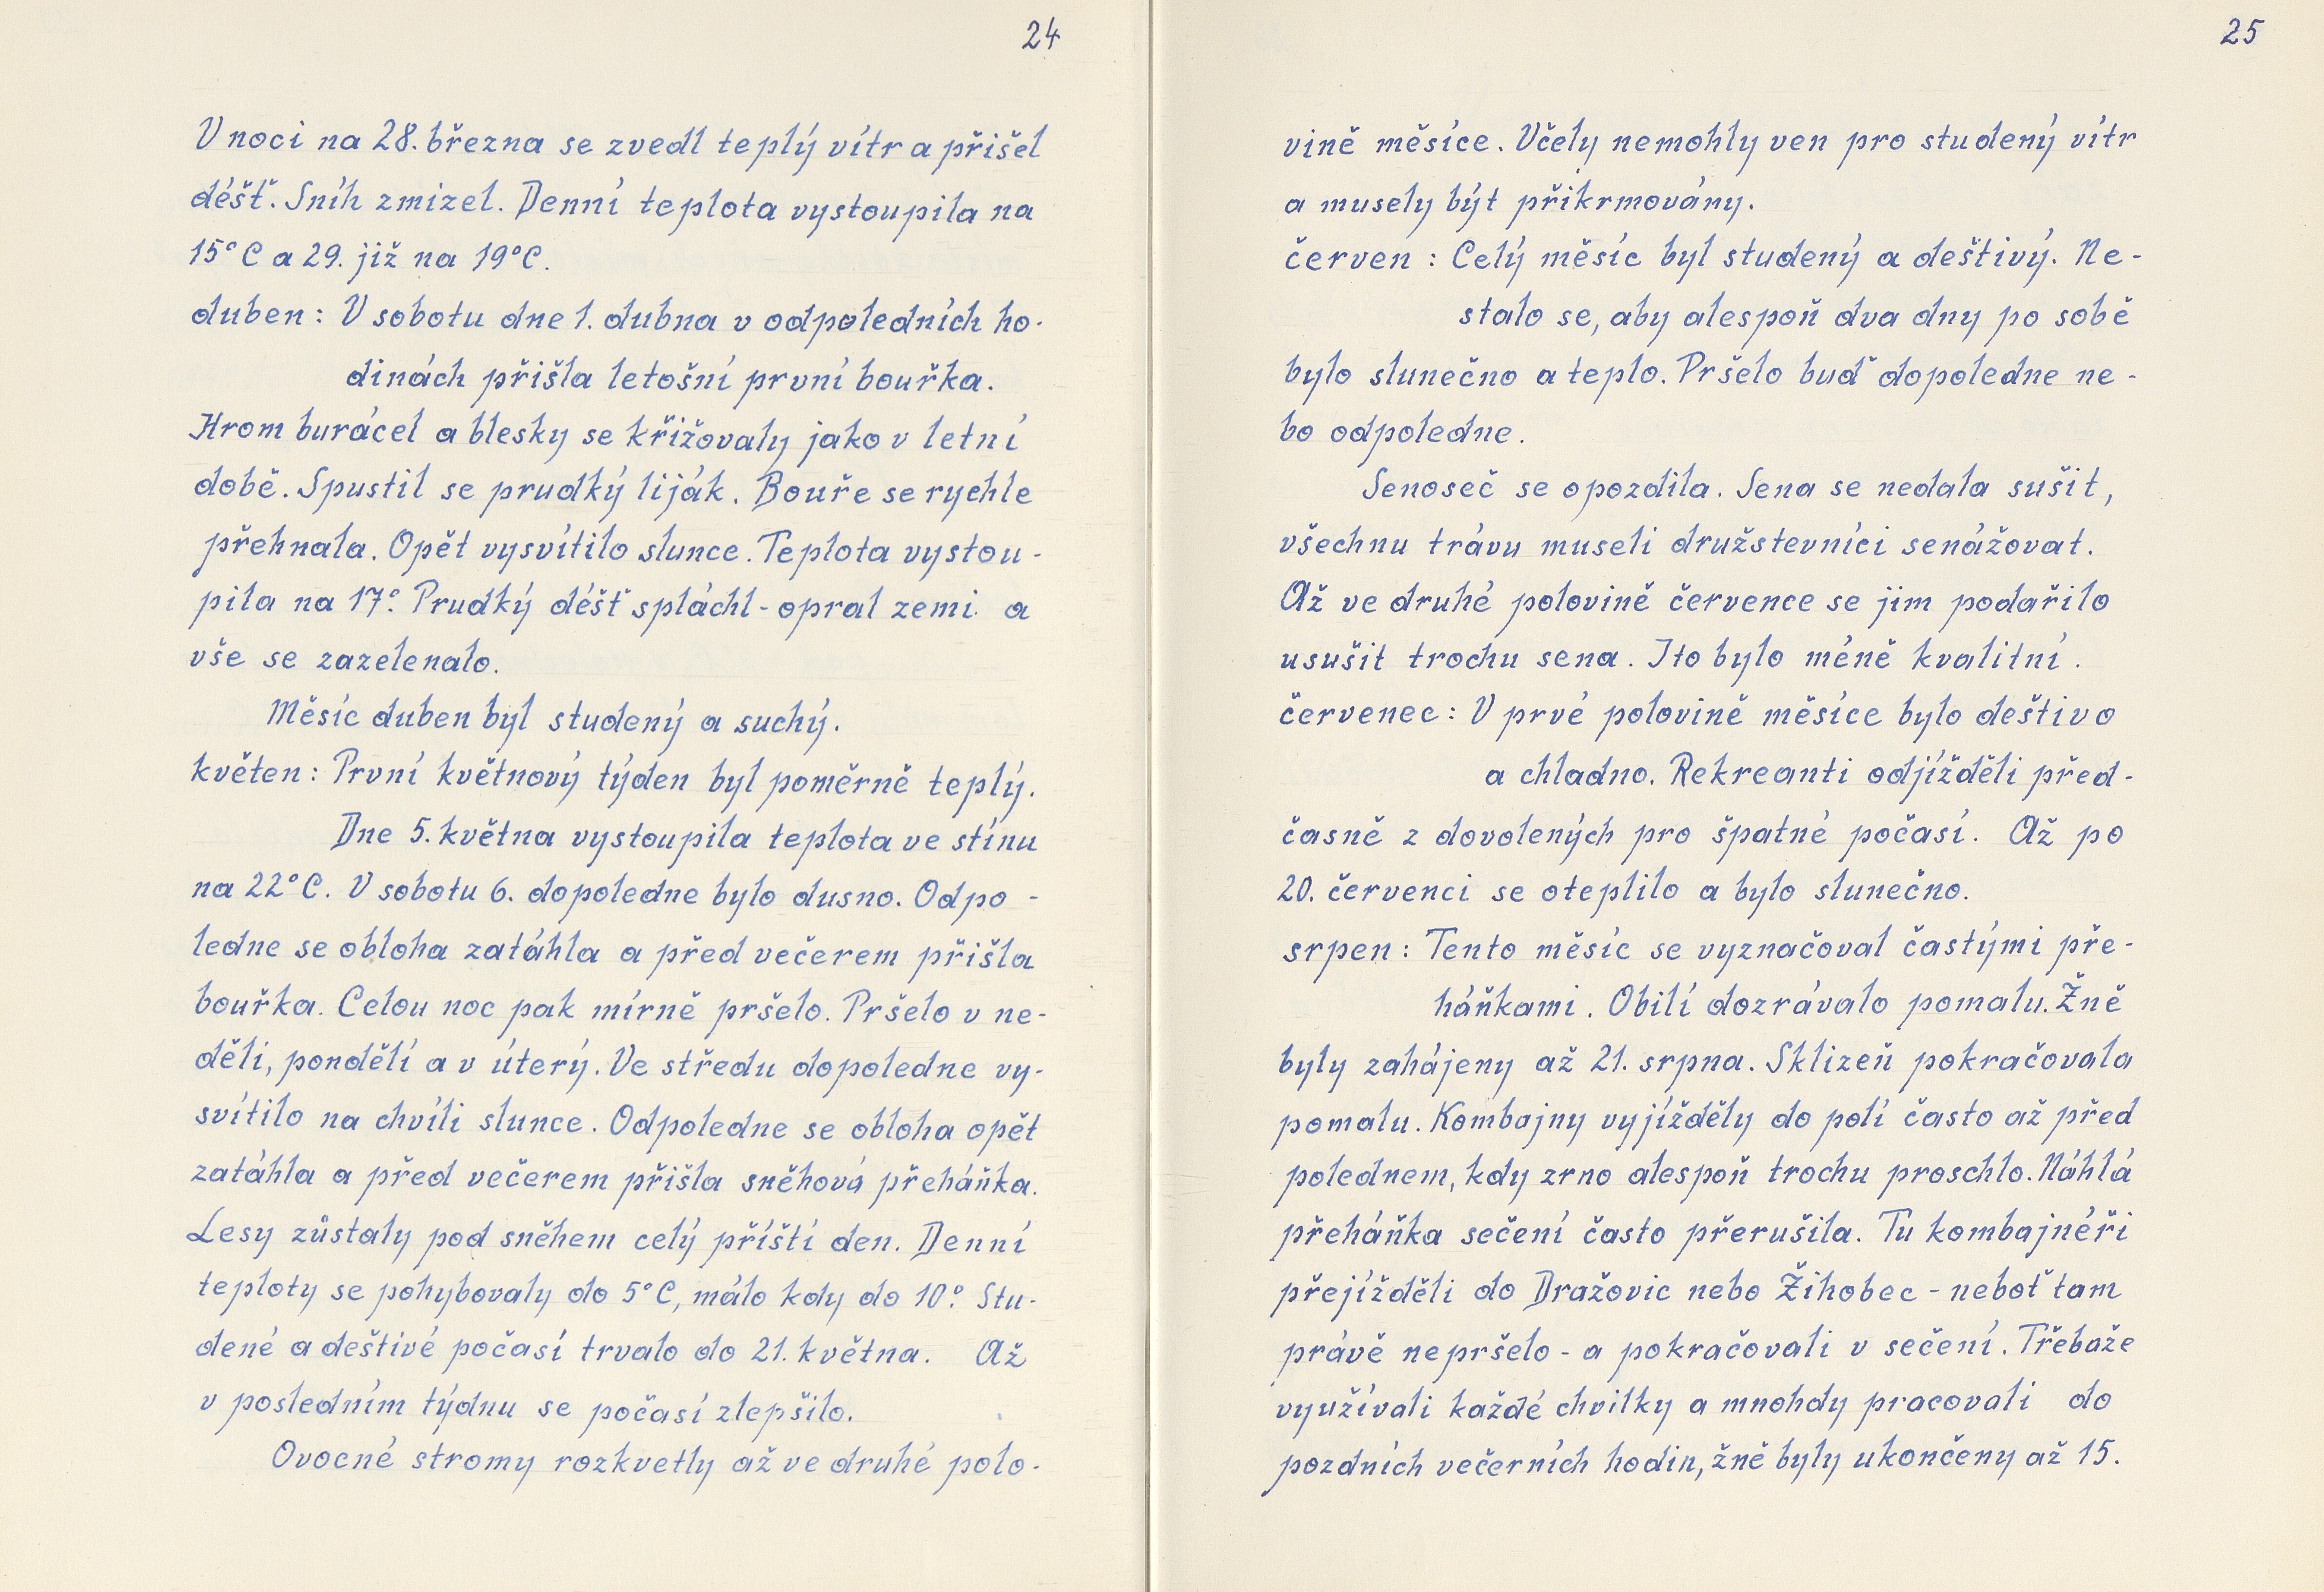 24
V noci na 28. března se zvedl teplý vítr a přišel
déšť. Sníh zmizel. Denní teplota vystoupila na
15°C a 29. již na 19°C.
duben: V sobotu dne 1. dubna v odpoledních ho-
dinách přišla letošní první bouřka.
Hrom burácel a blesky se křižovaly jako v letní
době. Spustil se prudký liják. Bouře se rychle
přehnala. Opět vysvítilo slunce. Teplota vystou-
pila na 17°. Prudký déšť spláchl - opral zemi a
vše se zazelenalo.
Měsíc duben byl studený a suchý.
květen: První květnový týden byl poměrně teplý.
Dne 5. května vystoupila teplota ve stínu
na 22°C. V sobotu 6. dopoledne bylo dusno. Odpo-
ledne se obloha zatáhla a před večerem přišla
bouřka. Celou noc pak mírně pršelo. Pršelo v ne-
děli, pondělí a v úterý. Ve středu dopoledne vy-
svítilo na chvíli slunce. Odpoledne se obloha opět
zatáhla a před večerem přišla sněhová přeháňka.
Lesy zůstaly pod sněhem celý příští den. Denní
teploty se pohybovaly do 5°C, málo kdy do 10°. Stu-
dené a deštivé počasí trvalo do 21. května. Až
v posledním týdnu se počasí zlepšilo.
Ovocné stromy rozkvetly až ve druhé polo-
25
vině měsíce. Včely nemohly ven pro studený vítr
a musely být přikrmovány.
červen: Celý měsíc byl studený a deštivý. Ne-
stalo se, aby alespoň dva dny po sobě
bylo slunečno a teplo. Pršelo buď dopoledne ne-
bo odpoledne.
Senoseč se opozdila. Sena se nedala sušit,
všechnu trávu museli družstevníci senážovat.
Až ve druhé polovině července se jim podařilo
usušit trochu sena. I to bylo méně kvalitní.
červenec: V prvé polovině měsíce bylo deštivo
a chladno. Rekreanti odjížděli před-
časně z dovolených pro špatné počasí. Až po
20. červenci se oteplilo a bylo slunečno.
srpen: Tento měsíc se vyznačoval častými pře-
háňkami. Obilí dozrávalo pomalu. Žně
byly zahájeny až 21. srpna. Sklizeň pokračovala
pomalu. Kombajny vyjížděly do polí často až před
polednem, kdy zrno alespoň trochu proschlo. Náhlá
přeháňka sečení často přerušila. Tu kombajnéři
přejížděli do Dražovic nebo Žihobec - neboť tam
právě nepršelo - a pokračovali v sečení. Třebaže
využívali každé chvilky a mnohdy pracovali do
pozdních večerních hodin, žně byly ukončeny až 15.